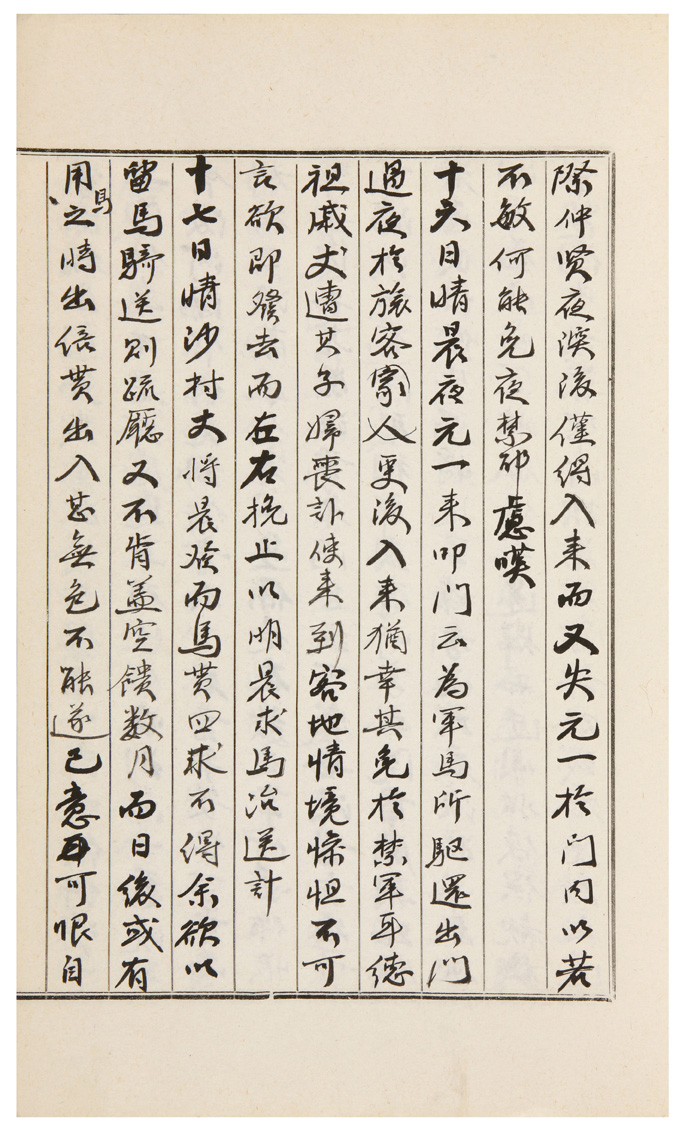 際仲賢夜深後僅得入来而又失元一於门内以若
不敏何能免夜禁耶慮嘆
十六日晴晨夜元一来叩门云為軍馬所驱還出门
過夜於旅客家人更後入来猶幸其免於禁軍耳德
祖戚丈遭其子婦喪訃使来到客地情境慘怛不可
言欲即發去而在右挽止以明晨求馬治送計
十七日晴沙村丈将晨發而馬貰四求不得余欲以
留馬騎送則疏廳又不肯盖空饋数月而日後或有
用馬之時出倍貰出入甚無色不能遂己意耳可恨自